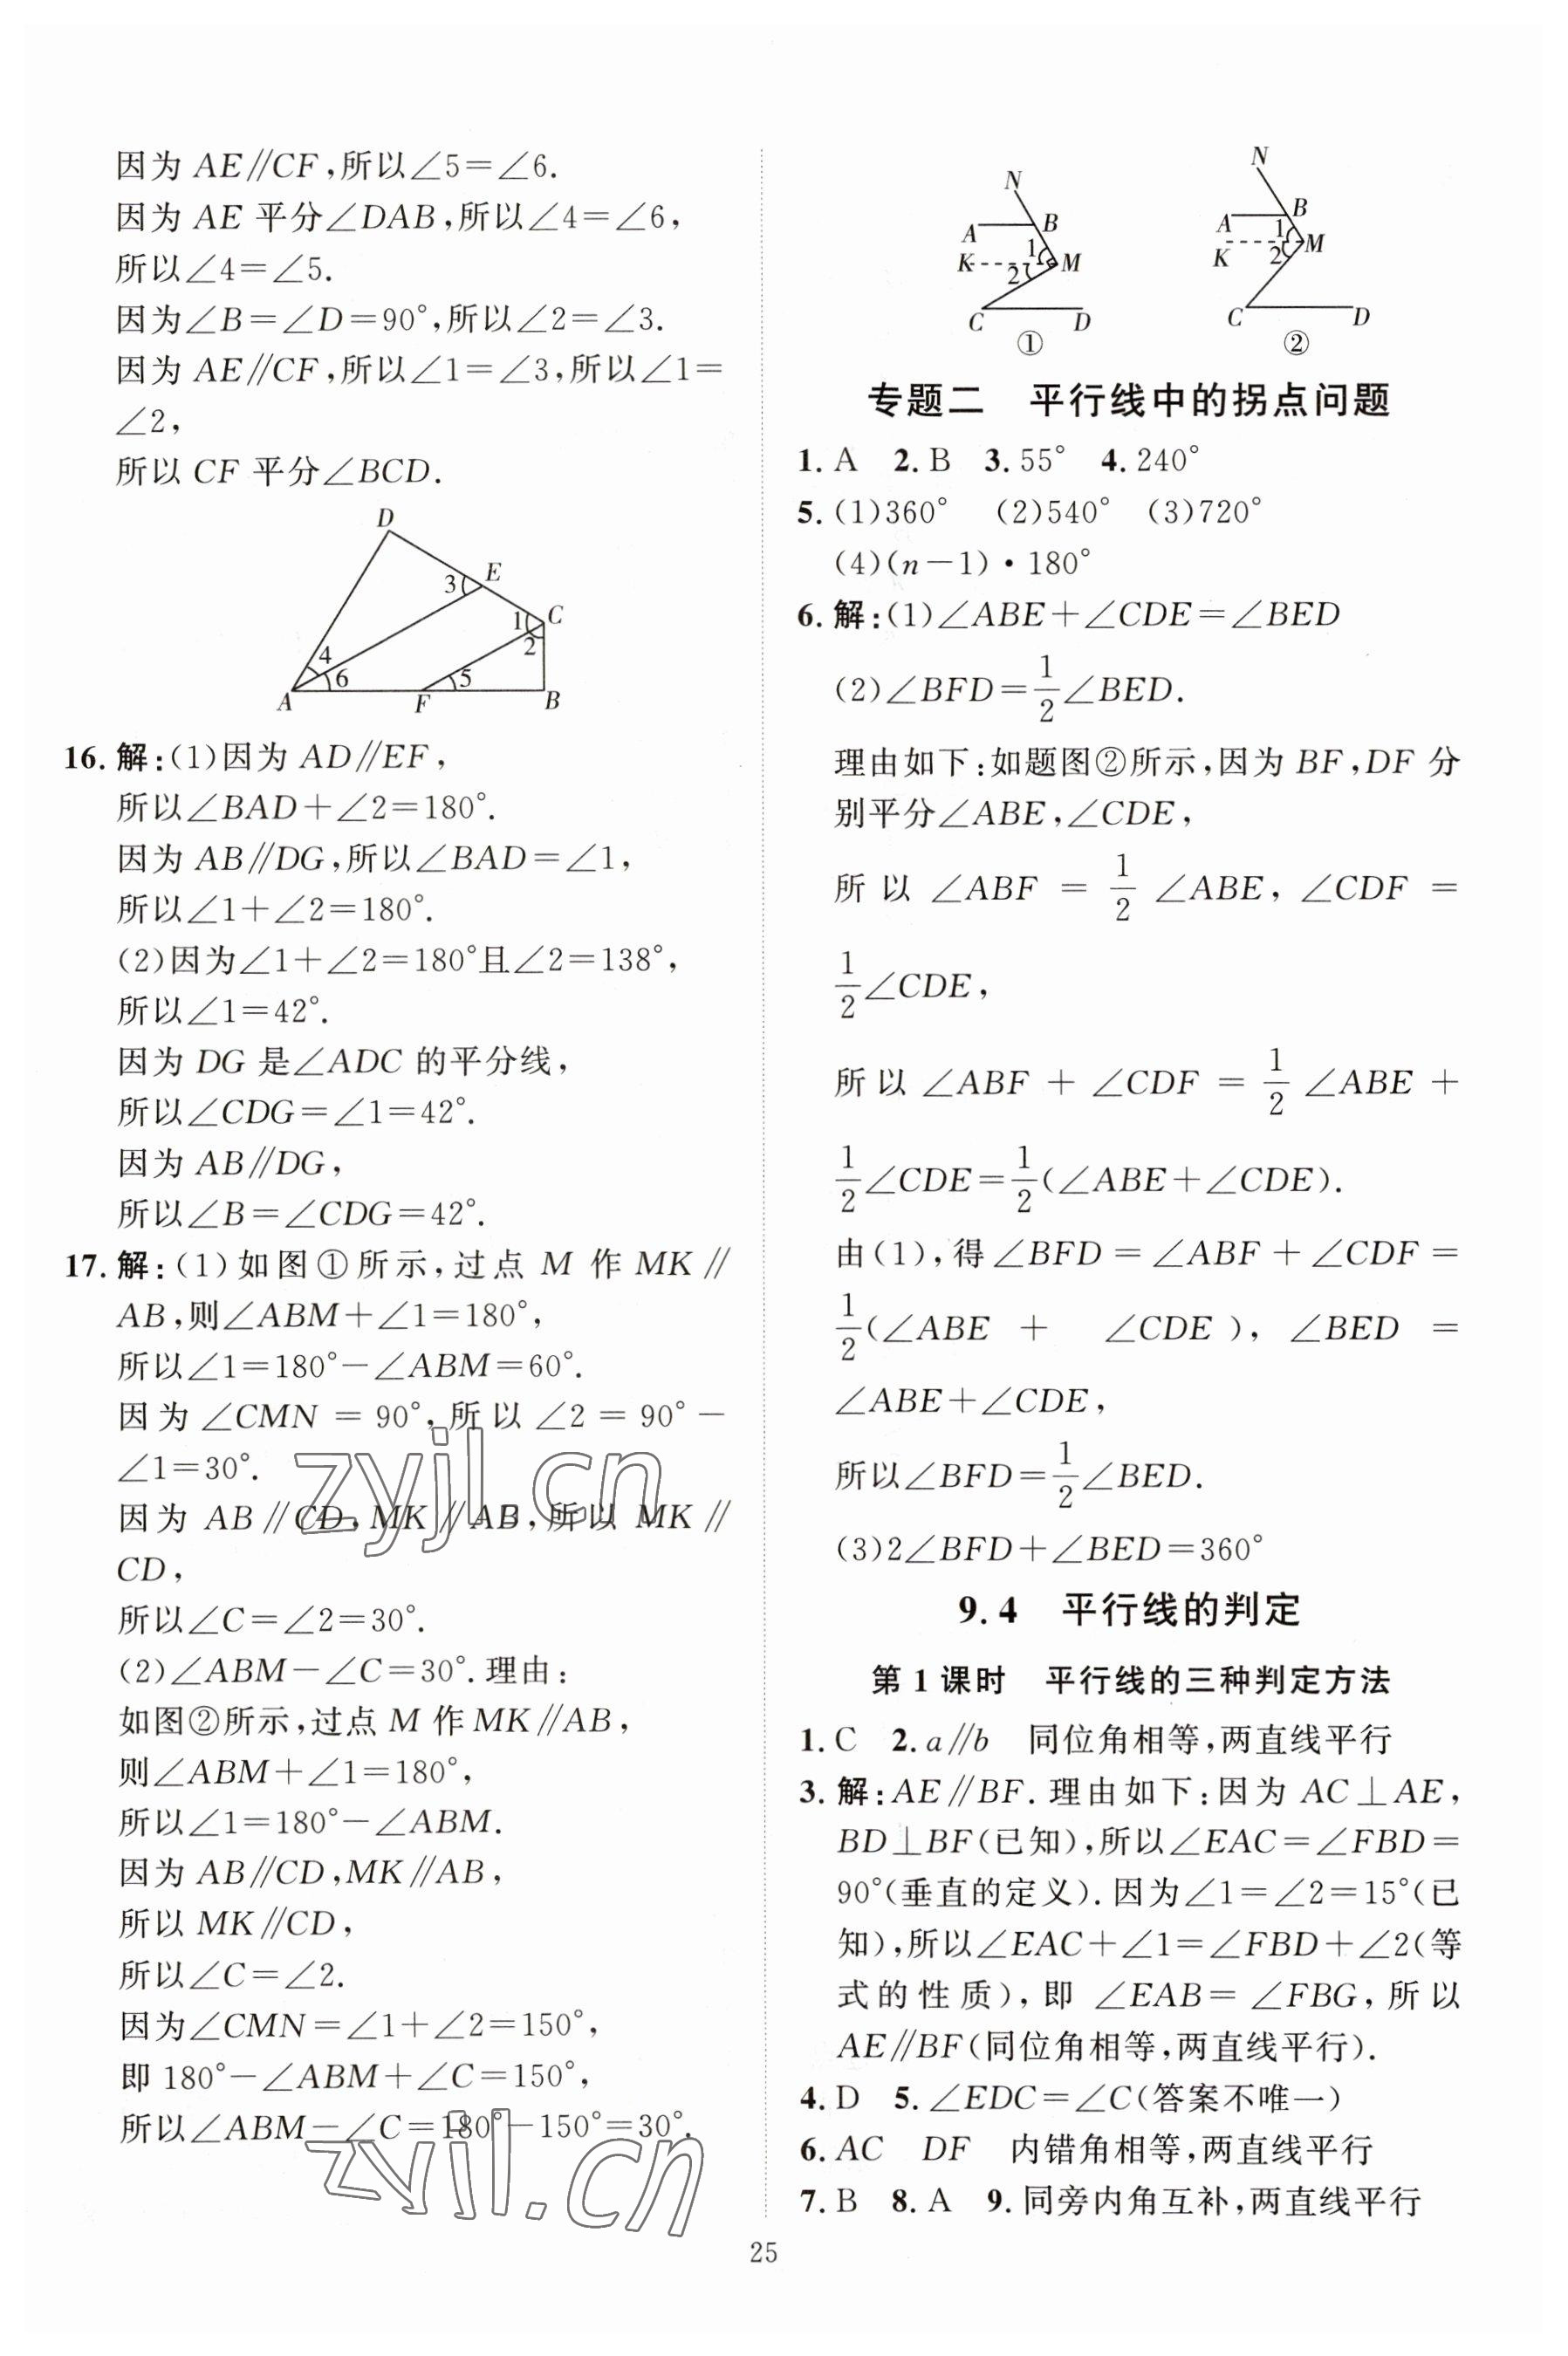 因为 AE∥CF,所以∠5=∠6.
因为 AE 平分∠DAB,所以∠4=∠6,
所以∠4=∠5.
因为∠B=∠D=90°,所以∠2=∠3.
因为 AE∥CF,所以∠1=∠3,所以∠1=
∠2,
所以 CF 平分∠BCD.
D
3 E
1 C
2
4
6 5
A F B
16. 解:(1)因为 AD∥EF,
所以∠BAD+∠2=180°.
因为 AB∥DG,所以∠BAD=∠1,
所以∠1+∠2=180°.
(2)因为∠1+∠2=180°且∠2=138°,
所以∠1=42°.
因为 DG 是∠ADC 的平分线,
所以∠CDG=∠1=42°.
因为 AB∥DG,
所以∠B=∠CDG=42°.
17. 解:(1)如图①所示,过点 M 作 MK∥
AB,则∠ABM+∠1=180°,
所以∠1=180°-∠ABM=60°.
因为∠CMN=90°,所以∠2=90°-
∠1=30°.
因为 AB∥CD,MK∥AB,所以 MK∥
CD,
所以∠C=∠2=30°.
(2)∠ABM-∠C=30°.理由:
如图②所示,过点 M 作 MK∥AB,
则∠ABM+∠1=180°,
所以∠1=180°-∠ABM.
因为 AB∥CD,MK∥AB,
所以 MK∥CD,
所以∠C=∠2.
因为∠CMN=∠1+∠2=150°,
即 180°-∠ABM+∠C=150°,
所以∠ABM-∠C=180°-150°=30°.
zyjl.cn
zyjl.cn
N
A B
1
K 2 M
C D
①
N
A B
1
K 2 M
C D
②
专题二 平行线中的拐点问题
1. A 2. B 3. 55° 4. 240°
5. (1)360° (2)540° (3)720°
(4)(n-1)·180°
6. 解:(1)∠ABE+∠CDE=∠BED
(2)∠BFD=1/2∠BED.
理由如下:如题图②所示,因为 BF,DF 分
别平分∠ABE,∠CDE,
所以 ∠ABF = 1/2 ∠ABE, ∠CDF =
1/2∠CDE,
所以 ∠ABF + ∠CDF = 1/2 ∠ABE +
1/2∠CDE=1/2(∠ABE+∠CDE).
由(1),得∠BFD=∠ABF+∠CDF=
1/2(∠ABE + ∠CDE), ∠BED =
∠ABE+∠CDE,
所以∠BFD=1/2∠BED.
(3)2∠BFD+∠BED=360°
9.4 平行线的判定
第 1 课时 平行线的三种判定方法
1. C 2. a∥b 同位角相等,两直线平行
3. 解:AE∥BF.理由如下:因为 AC⊥AE,
BD⊥BF(已知),所以∠EAC=∠FBD=
90°(垂直的定义).因为∠1=∠2=15°(已
知),所以∠EAC+∠1=∠FBD+∠2(等
式的性质),即 ∠EAB=∠FBG,所以
AE∥BF(同位角相等,两直线平行).
4. D 5. ∠EDC=∠C(答案不唯一)
6. AC DF 内错角相等,两直线平行
7. B 8. A 9. 同旁内角互补,两直线平行
25